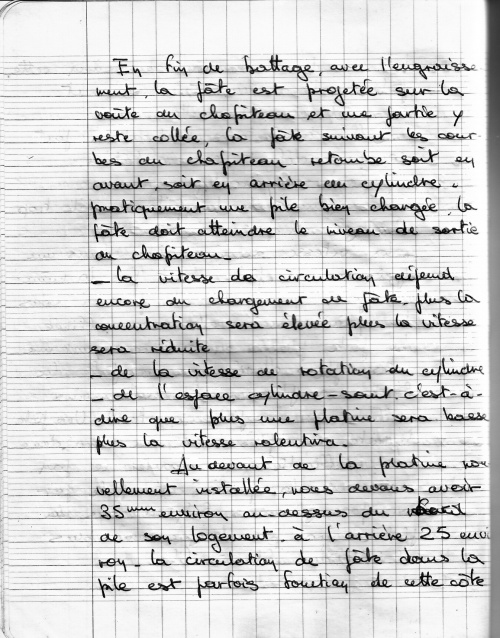 En fin de battage, avec l'engraisse-
ment, la pâte est projetée sur la
voûte du chapiteau et une partie y
reste collée, la pâte suivant les cour-
bes du chapiteau retombe soit en
avant, soit en arrière du cylindre.
pratiquement une pile bien chargée, la
pâte doit atteindre le niveau de sortie
du chapiteau.
- la vitesse de circulation dépend
encore du chargement de pâte. plus la
concentration sera élevée plus la vitesse
sera réduite
- de la vitesse de rotation du cylindre
- de l'espace cylindre-saut. c'est-à-
dire que plus une platine sera basse
plus la vitesse ralentira.
Au devant de la platine nou
vellement installée, nous devons avoir
35mm environ au-dessus du
de son logement. à l'arrière 25 envi
ron. la circulation de pâte dans la
pile est parfois fonction de cette côte